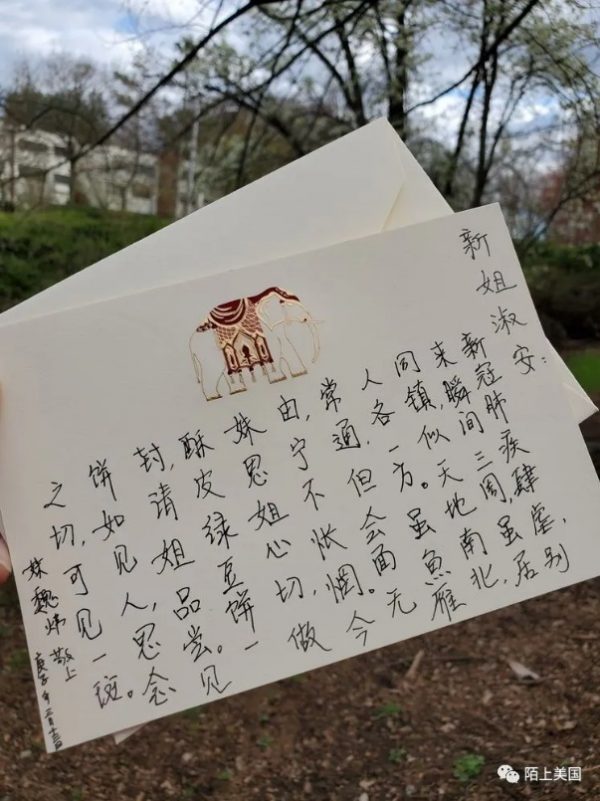 新姐淑安：
新冠肺疾肆虐，别
来瞬间三周，虽居
同镇，似天地南北，
人各一方。虽魚雁
常通，但会面无
由，宁不怅惘。今
妹思姐心切，做
酥皮绿豆饼一
封，请姐品尝。见
饼如见人，思念
之切，可见一斑。
妹魏炜敬上
庚子年三月十三日
陌上美国